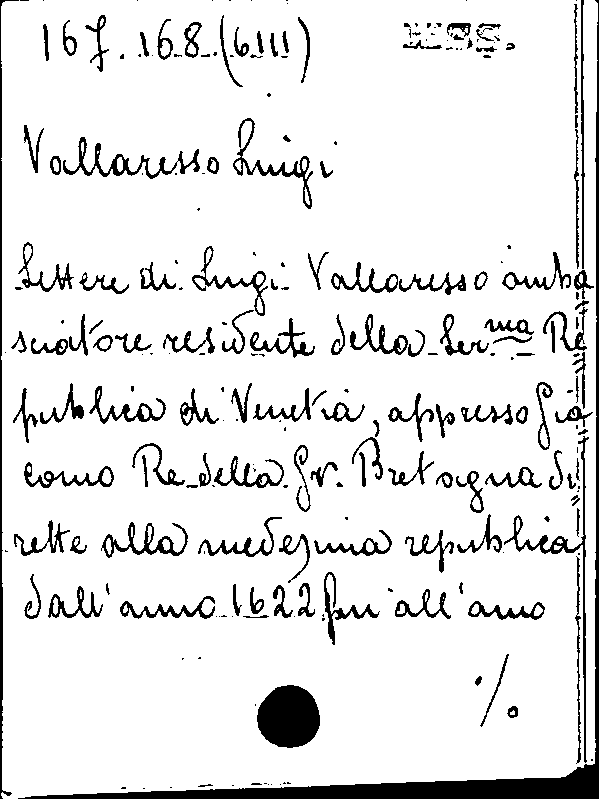 167. 168 (6.111) MSS.
Vallaresso Luigi
Lettere di Luigi Vallaresso amba
sciatore residente della Ser.ma Re
publica di Venetia, appresso Gia
como Re della Gr. Bretagna di
rette alla medesima republica
dall'anno 1622 fin all'anno
./.